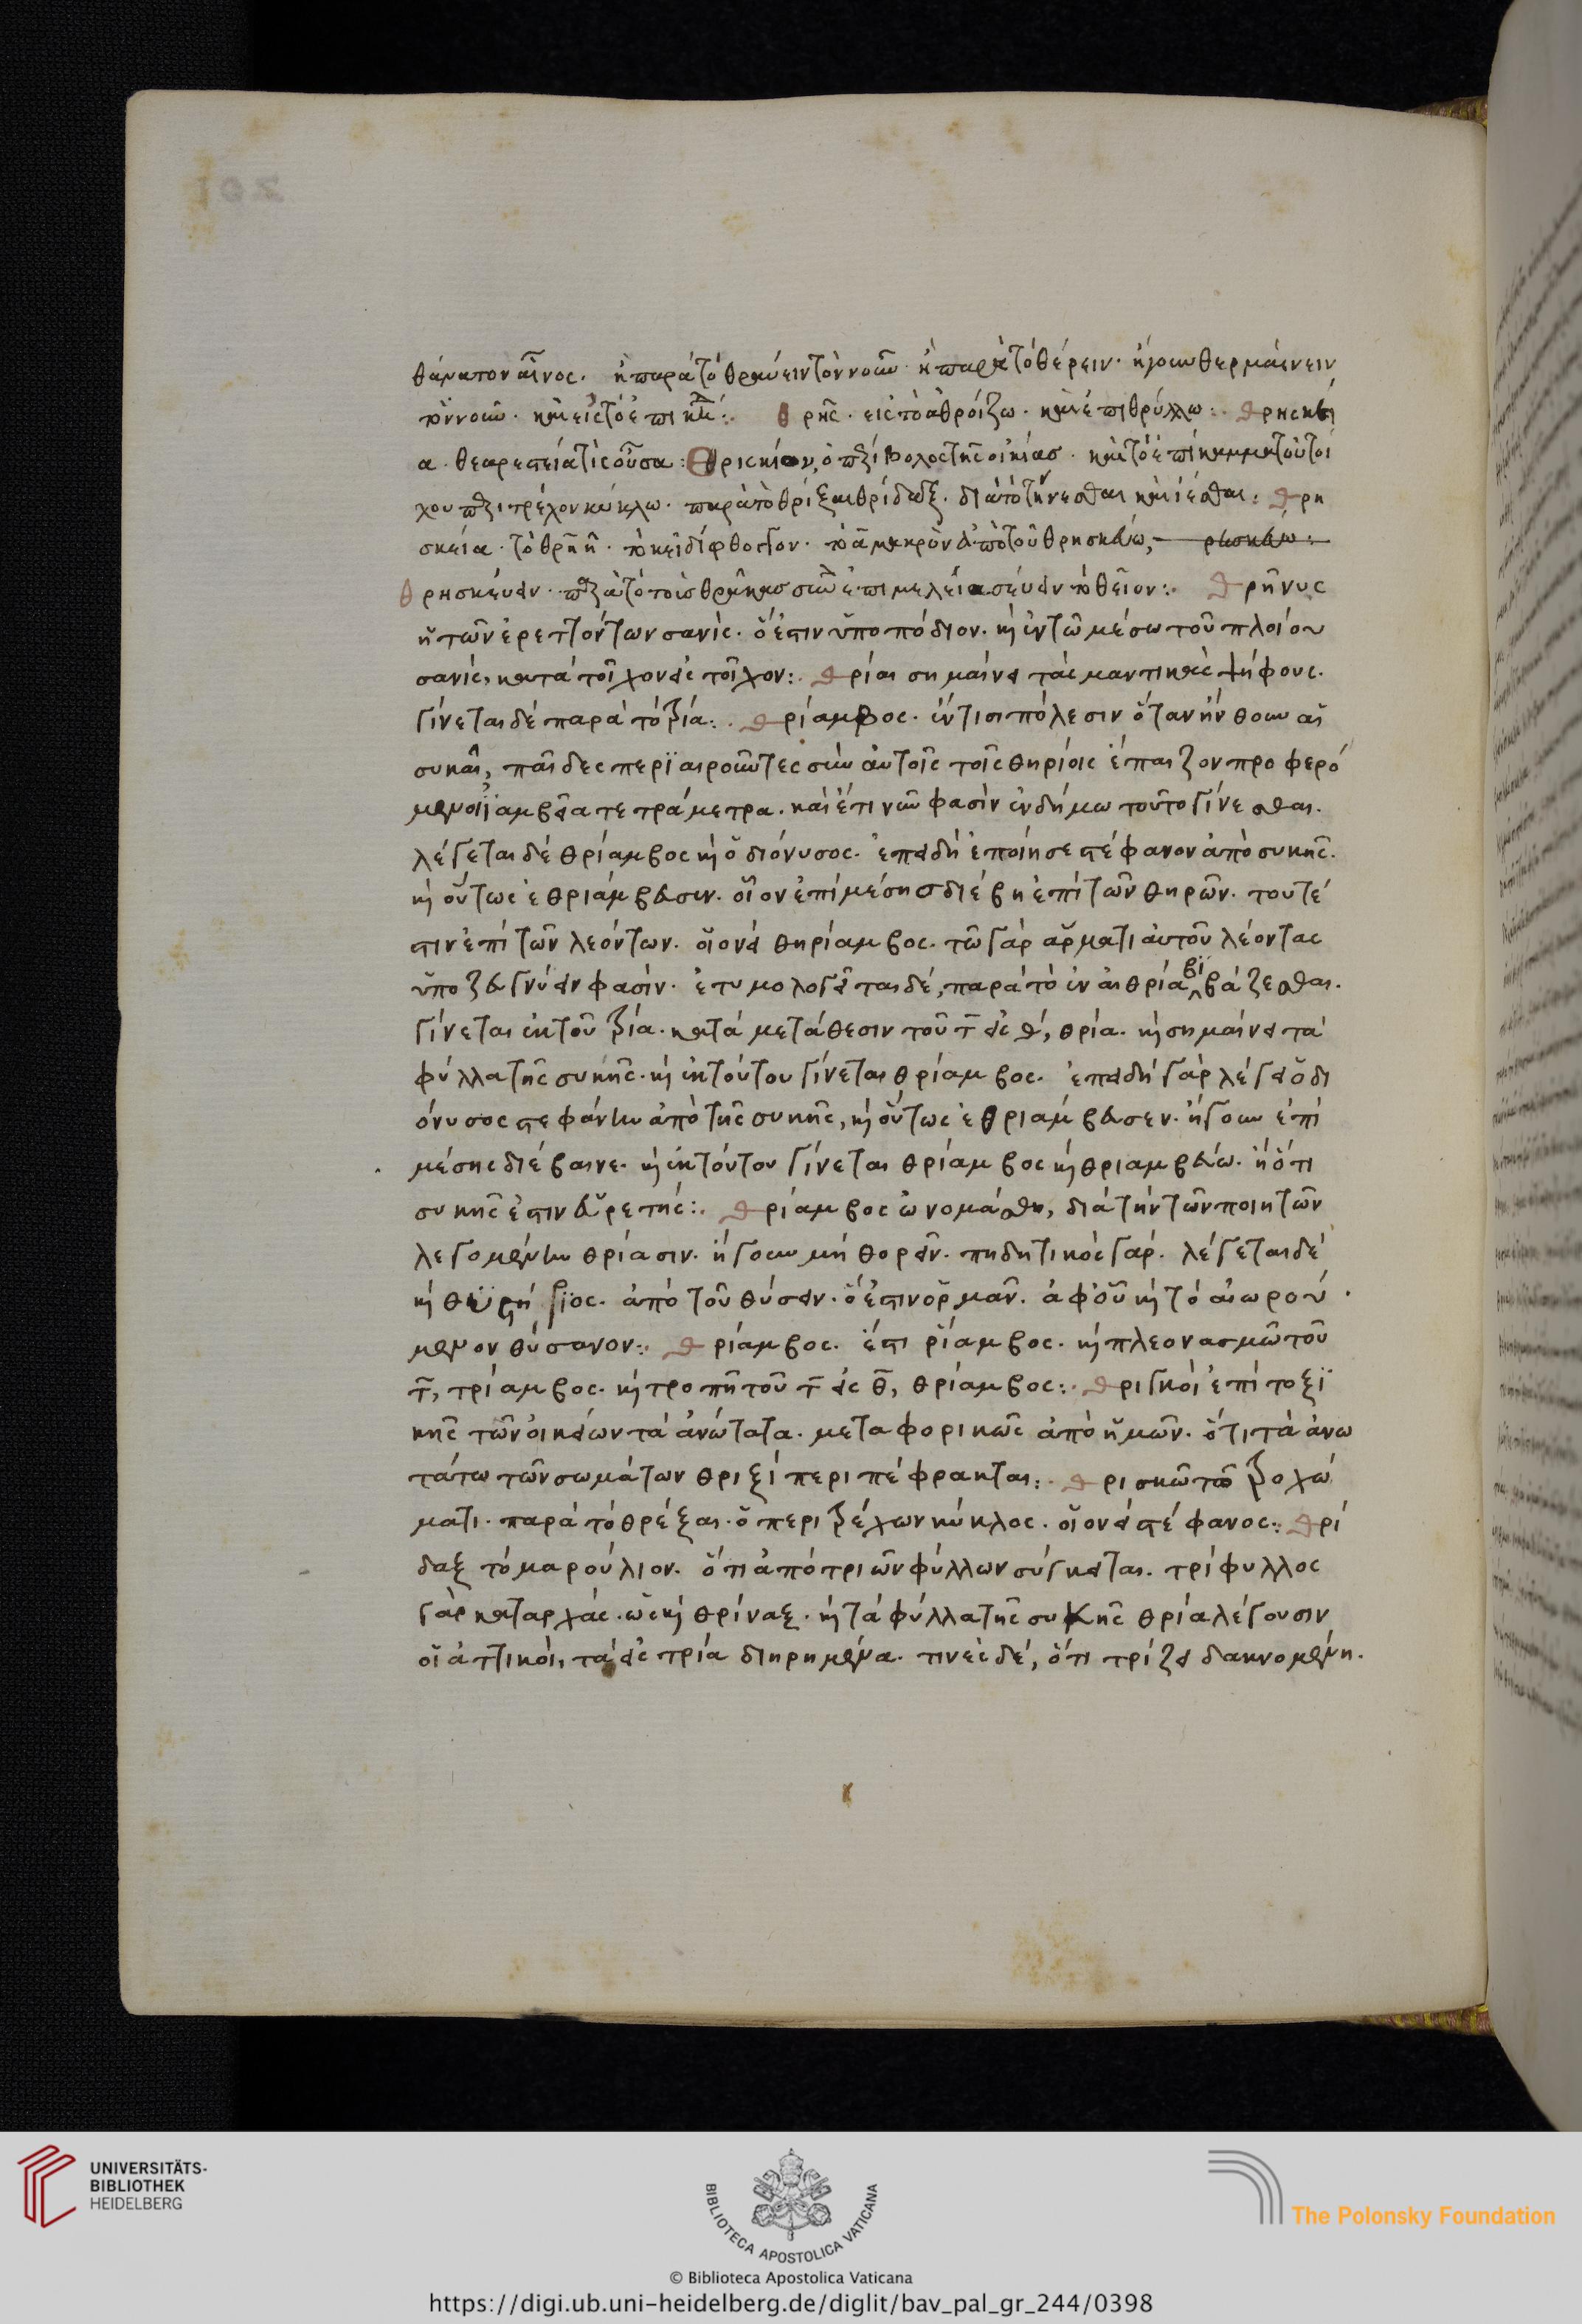 θάνατον αἶνος. ἢ παρὰ τὸ θραύειν τὸν νοῦν ἢ παρὰ τὸ θέρειν. ἤγουν θερμαίνειν
τὸν νοῦν. καὶ εἰς τὸ ἐπι :. θρης. εἰς τὸ ἀθροίζω. καὶ ἐπιθρύλλω :. θρησκεί
α. θεαρεστεία τὶς οὖσα : Θριγκίον, ὁ περίβολος τῆς οἰκίας. καὶ τὸ ἐπίκαμμα τοῦ τοί
χου περιτρέχον κύκλω. παρὰ τὸ θρίξ καὶ θρίδαξ. διὰ τὸ γίνεσθαι καὶ ἵεσθαι : θρη
σκεία. τὸ θρη η. τὸ κει δίφθογγον. τὸ α μακρὸν ἀπὸ τοῦ θρησκεύω,
θρησκεύειν. παρὰ τὸ τοὺς θρᾶκας σὺν ἐπιμελεία σέβειν τὸ θεῖον :. θρῆνυς
ἡ τῶν ἐρεττόντων σανίς. ὅ ἐστιν ὑποπόδιον. ἢ ἐν τῶ μέσω τοῦ πλοίου
σανίς, κατὰ τοῖχον εἰς τοῖχον :. θρίαι σημαίνει τὰς μαντικὰς ψήφους.
γίνεται δὲ παρὰ τὸ τρία :. θρίαμβος. ἔν τισι πόλεσιν ὅταν ἤνθουν αἱ
συκαῖ, παῖδες περϊαιροῦντες σὺν αὐτοῖς τοῖς θηρίοις ἔπαιζον προφερό
μενοι ἰαμβεῖα τετράμετρα. καὶ ἔτι νῦν φασὶν ἐν δήμω τοῦτο γίνεσθαι.
λέγεται δὲ θρίαμβος καὶ ὁ διόνυσος. ἐπειδὴ ἐποίησε στέφανον ἀπὸ συκῆς.
καὶ οὕτως ἐθριάμβευσεν. οἷον ἐπὶ μέσης διέβη ἐπὶ τῶν θηρῶν. τουτέ
στιν ἐπὶ τῶν λεόντων. οἱονεὶ θηρίαμβος. τῶ γὰρ ἅρματι αὐτοῦ λέοντας
ὑποζευγνύειν φασίν. ἐτυμολογεῖται δέ, παρὰ τὸ ἐν αἰθρία βϊβάζεσθαι.
γίνεται ἐκ τοῦ τρία. κατὰ μετάθεσιν τοῦ τ εἰς θ, θρία. καὶ σημαίνει τὰ
φύλλα τῆς συκῆς. καὶ ἐκ τούτου γίνεται θρίαμβος. ἐπειδὴ γὰρ λέγει ὁ δι
όνυσος στεφάνην ἀπὸ τῆς συκῆς, καὶ οὕτως ἐθριάμβευσεν. ἤγουν ἐπὶ
μέσης διέβαινε. καὶ ἐκ τούτου γίνεται θρίαμβος καὶ θριαμβεύω. ἢ ὅτι
συκῆς ἐστιν εὑρετής :. θρίαμβος ὠνομάσθη, διὰ τὴν τῶν ποιητῶν
λεγομένην θρίασιν. ἤγουν μὴ θορεῖν. πηδητικὸς γάρ. λέγεται δὲ
καὶ θϋρσή τϊος. ἀπὸ τοῦ θύσειν. ὅ ἐστιν ὁρμᾶν. ἀφ' οὗ καὶ τὸ αἰωρού
μενον θύσανον :. θρίαμβος. ἔστι ῥίαμβος. καὶ πλεονασμῶ τοῦ
τ, τρίαμβος. καὶ τροπῆ τοῦ τ εἰς θ, θρίαμβος :. θριγκοὶ ἐπὶ τοξϊ
κῆς τῶν οἰκείων τὰ ἀνώτατα. μεταφορικῶς ἀπὸ ἡμῶν. ὅτι τὰ ἀνω
τάτω τῶν σωμάτων θριξὶ περιπέφρακται :. θρισκῶ τῶ τροχώ
ματι. παρὰ τὸ θρέξαι. ὁ περιτρέχων κύκλος. οἱονεὶ στέφανος :. θρί
δαξ τὸ μαρούλιον. ὅτι ἀπὸ τριῶν φύλλων σύγκειται. τρίφυλλος
γὰρ καταρχάς. ὡς καὶ θρίναξ. καὶ τὰ φύλλα τῆς συκῆς θρία λέγουσιν
οἱ ἀττικοί, τὰ εἰς τρία διηρημένα. τινὲς δέ, ὅτι τρίζει δακνομένη.
UNIVERSITÄTS-
BIBLIOTHEK
HEIDELBERG
BIBLIOTECA APOSTOLICA VATICANA
The Polonsky Foundation
© Biblioteca Apostolica Vaticana
https://digi.ub.uni-heidelberg.de/diglit/bav_pal_gr_244/0398